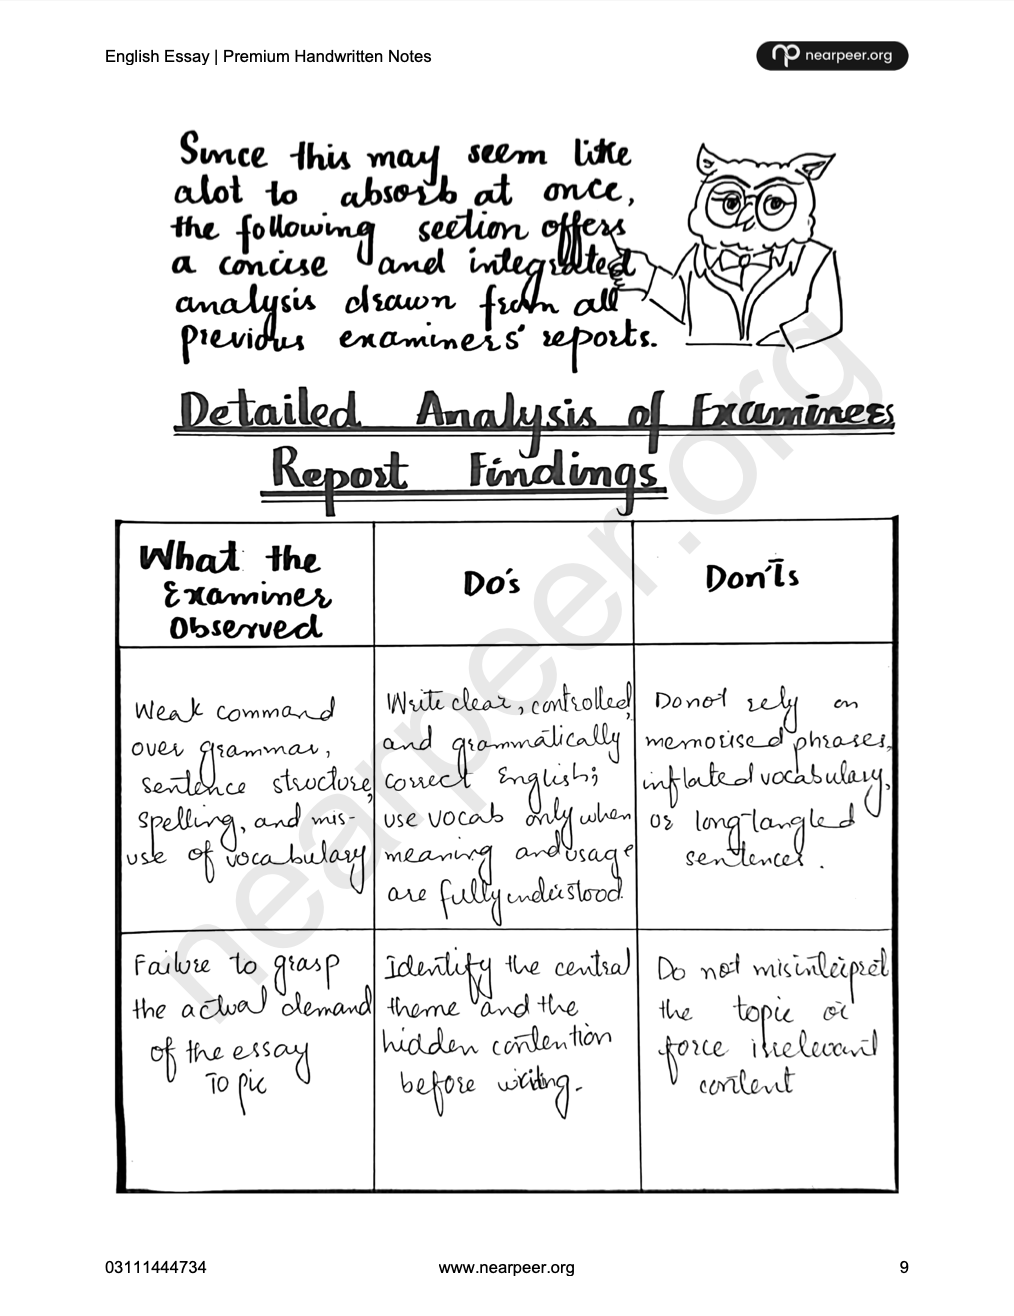 English Essay | Premium Handwritten Notes
nearpeer.org
Since this may seem like
alot to absorb at once,
the following section offers
a concise and integrated
analysis drawn from all
previous examiners' reports.
Detailed Analysis of Examiners
Report Findings
What the
Examiner
Observed
Do's
Don'ts
Weak command
over grammar,
sentence structure,
spelling, and mis-
use of vocabulary
Write clear, controlled,
and grammatically
correct English;
use vocab only when
meaning and usage
are fully understood.
Do not rely on
memorised phrases,
inflated vocabulary,
or long-tangled
sentences.
Failure to grasp
the actual demand
of the essay
Topic
Identify the central
theme and the
hidden contention
before writing.
Do not misinterpret
the topic or
force irrelevant
content
nearpeer.org
03111444734
www.nearpeer.org
9